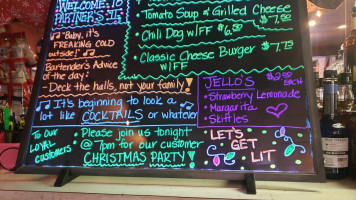 WELCOME TO
PARTNER'S II
"Baby, it's
FREAKING COLD
outside!"
Bartender's Advice
of the day:
- Deck the halls, not your family!
It's beginning to look a
lot like COCKTAILS or whatever
To Our
LOYAL
Customers
Please join us tonight
@ 7pm for our customer
CHRISTMAS PARTY!
Tomato Soup & Grilled Cheese
• Chili Dog w/FF
• Classic Cheese Burger
w/FF
JELLO'S
EACH
• Strawberry Lemonade
• Margarita
• Skittles
LET'S
GET
LIT